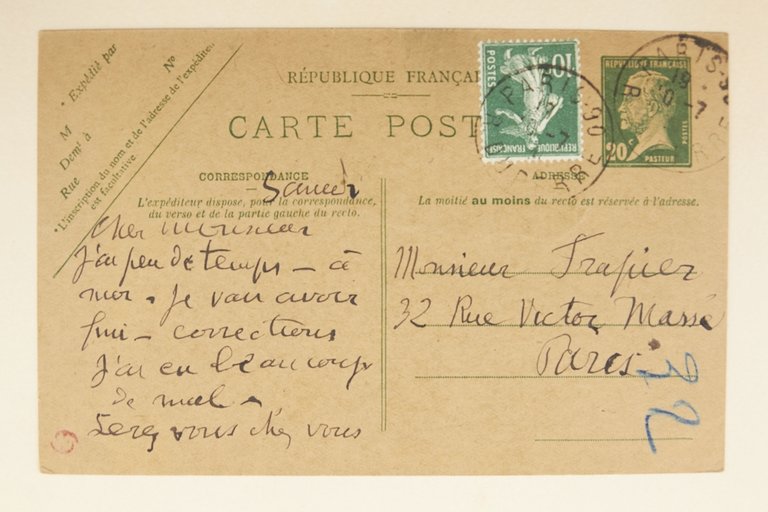 * Expédié par
Nº
M
Demt à
Rue
* L'inscription du nom et de l'adresse de l'expéditeur
est facultative
RÉPUBLIQUE FRANÇAI
CARTE POST
10c
POSTES
REPUBLIQUE FRANÇAISE
PARIS-90
RÉPUBLIQUE FRANÇAISE
POSTES
20c
PASTEUR
PARIS-90
19
10-7
CORRESPONDANCE
Samedi
L'expéditeur dispose, pour la correspondance,
du verso et de la partie gauche du recto.
ADRESSE
La moitié au moins du recto est réservée à l'adresse.
Cher Monsieur
J'ai peu de temps — à
moi. Je vais avoir
fini — corrections
J'ai eu beaucoup
de mal —
Serez vous chez vous
Monsieur Frapier
32 Rue Victor Massé
Paris.
32